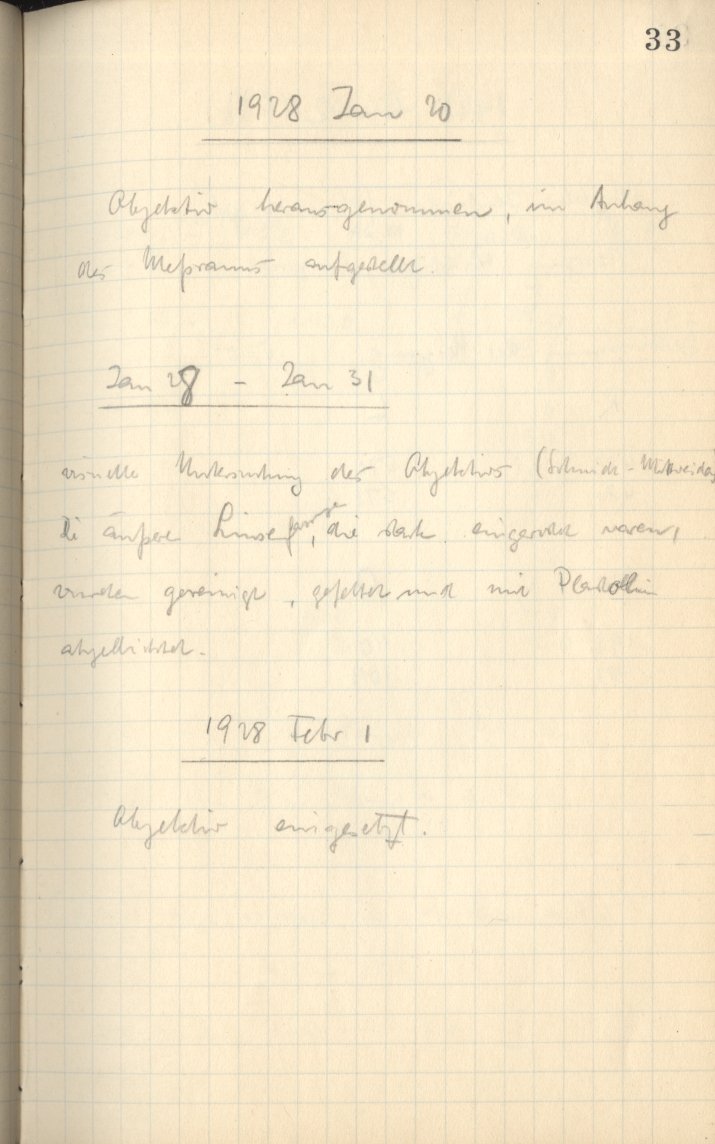 33
1928 Jan 20
Objektiv herausgenommen, im Anhang
des Meßraums aufgestellt.
Jan 28 - Jan 31
visuelle Untersuchung des Objektivs (Schmidt-Mittweida)
Die äußere Linsen, die stark eingerostet waren,
wurden gereinigt, gefettet und mit Plastellin
abgedichtet.
1928 Febr 1
Objektiv eingesetzt.